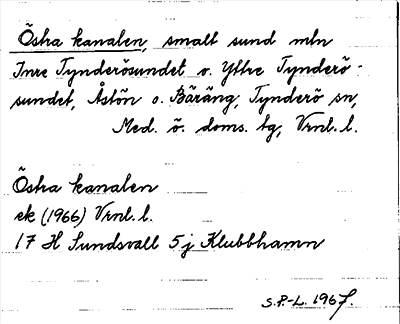 Östra kanalen, smalt sund mln
Inre Tynderösundet o. Yttre Tynderö-
sundet, Åstön o. Bäräng, Tynderö sn,
Med. ö. doms. tg, Vrnl. l.
Östra kanalen
ek (1966) Vrnl. l.
17 H Sundsvall 5j Klubbhamn
S.P-L. 1967.